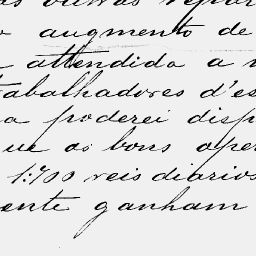 as outras repar
o augmento de
attendida a n
trabalhadores d'es
a poderei disp
que os bons oper
1:700 reis diarios
ente ganham